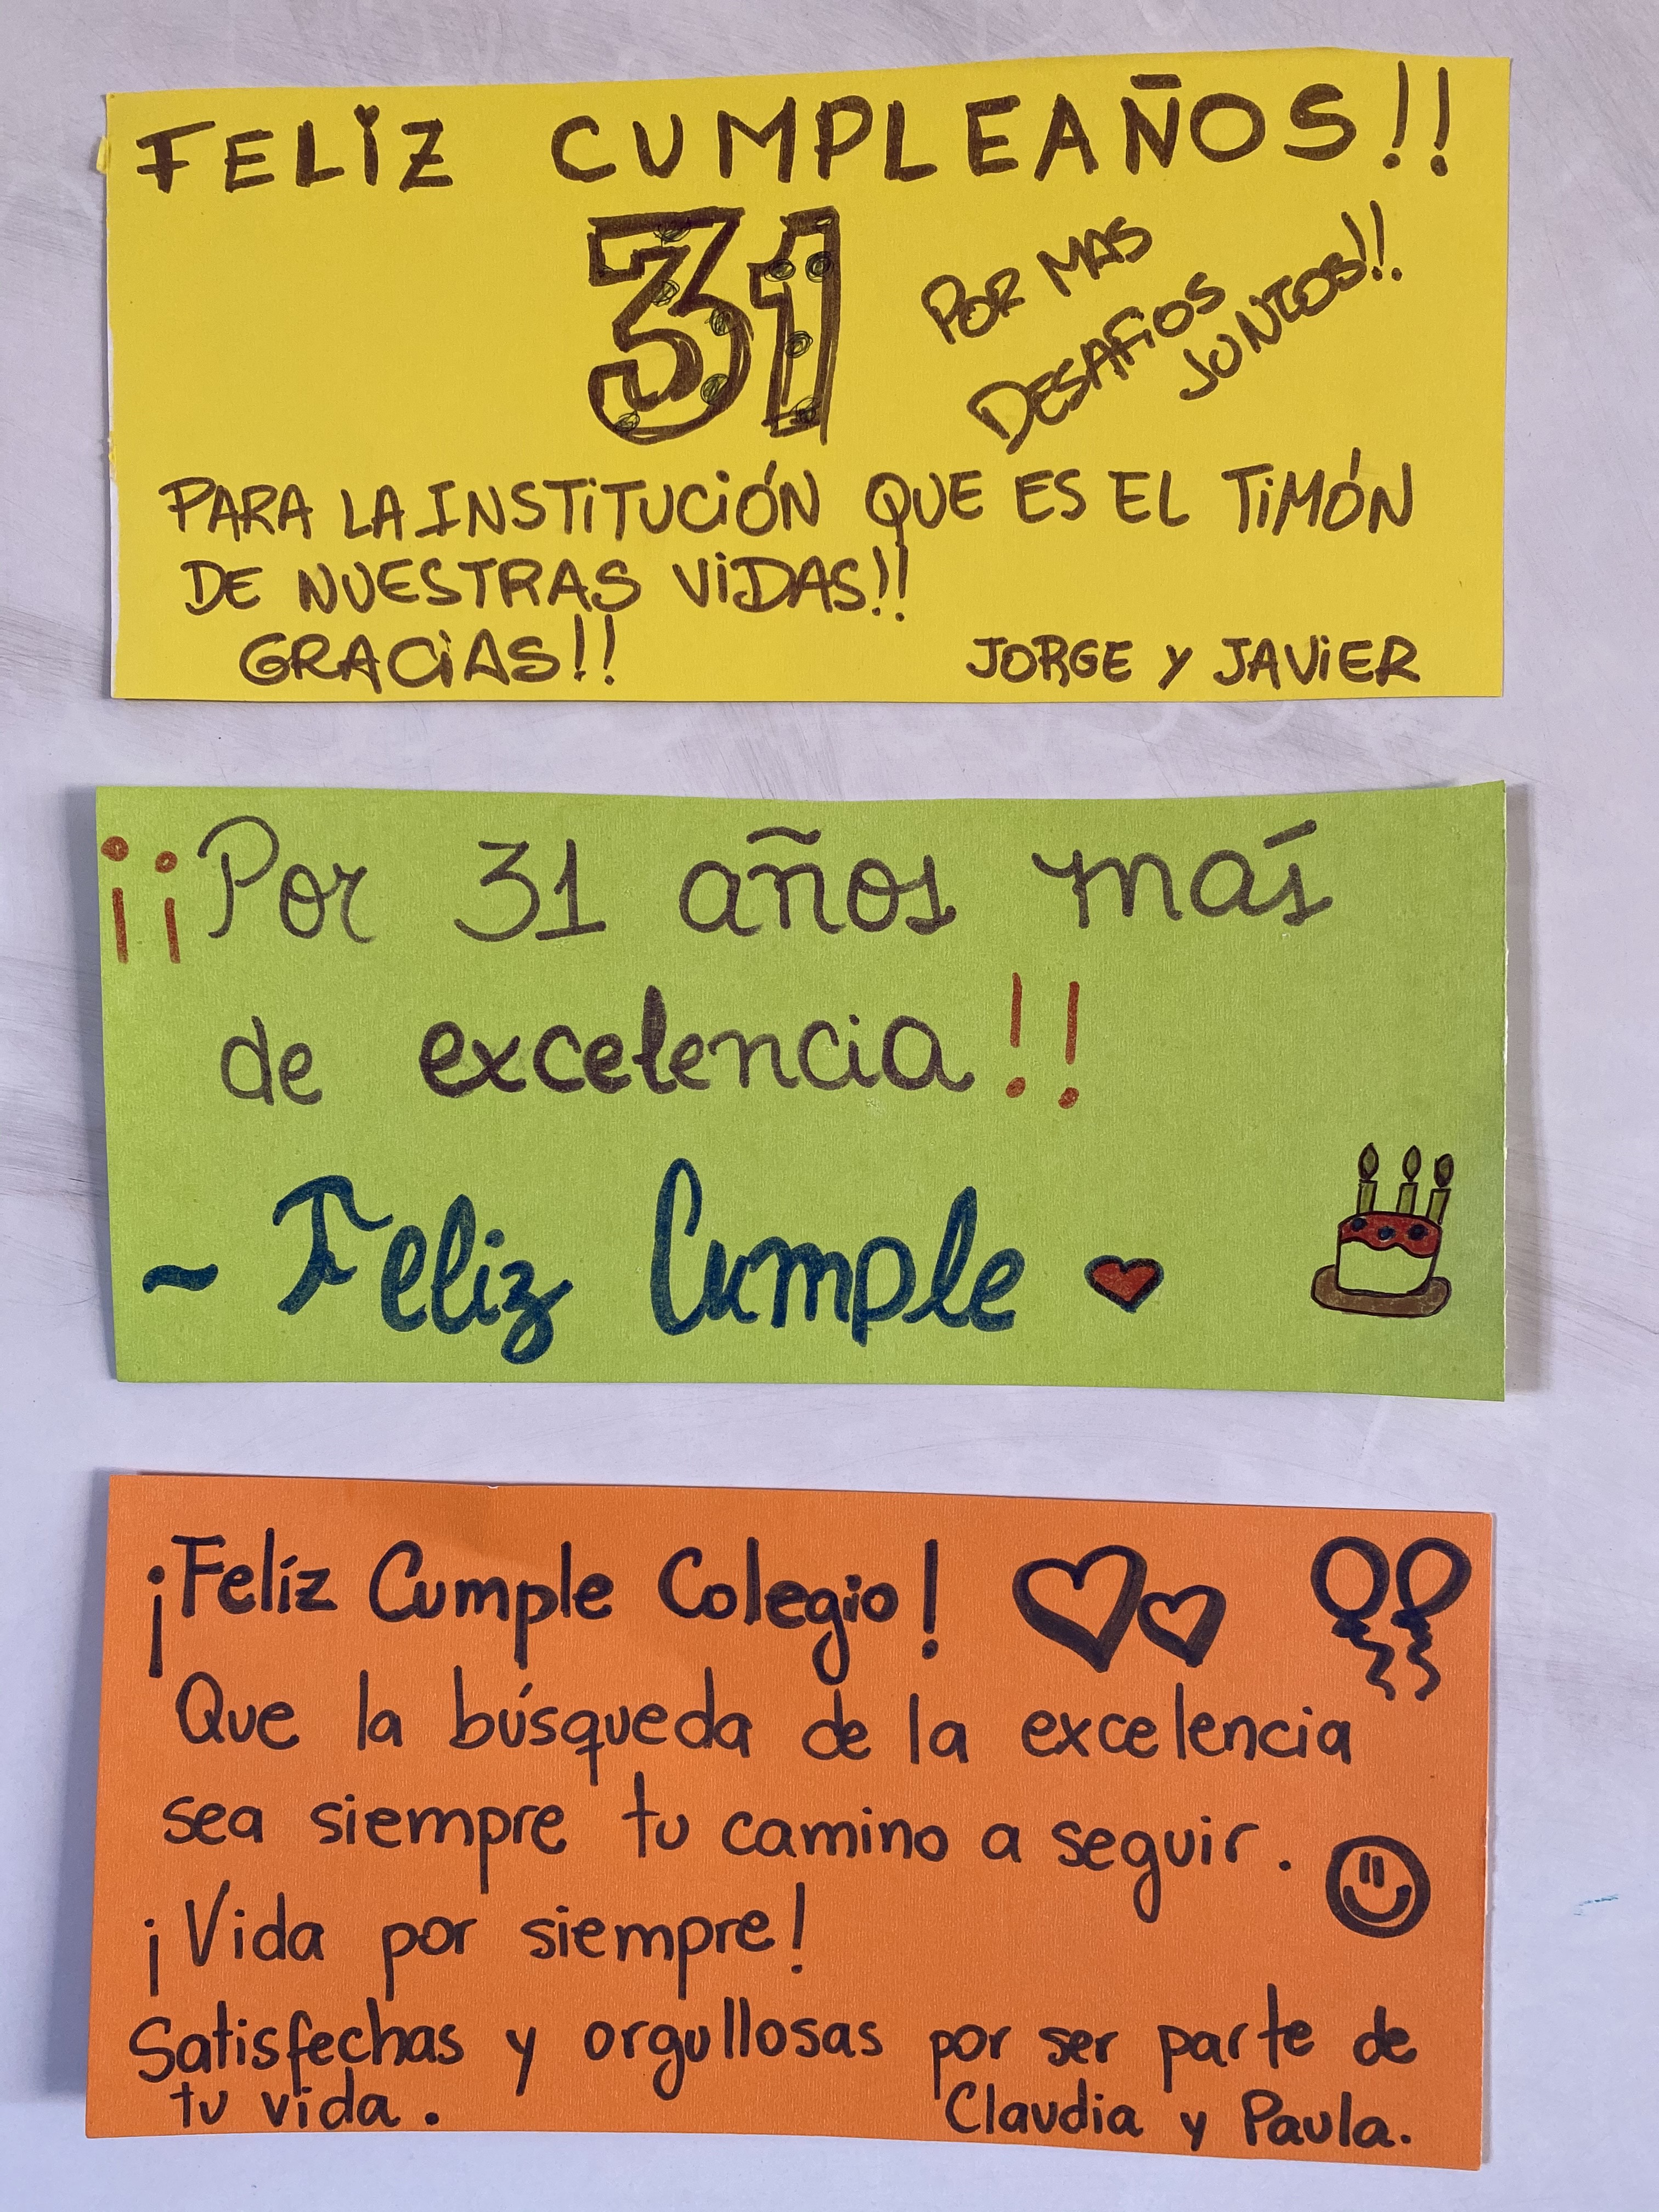 FELIZ CUMPLEAÑOS!!
31
POR MAS
DESAFIOS
JUNTOS!!
PARA LA INSTITUCIÓN QUE ES EL TIMÓN
DE NUESTRAS VIDAS!!
GRACIAS!! JORGE Y JAVIER
¡¡Por 31 años más
de excelencia!!
~ Feliz Cumple
¡Felíz Cumple Colegio!
Que la búsqueda de la excelencia
sea siempre tu camino a seguir.
¡Vida por siempre!
Satisfechas y orgullosas por ser parte de
tu vida. Claudia y Paula.